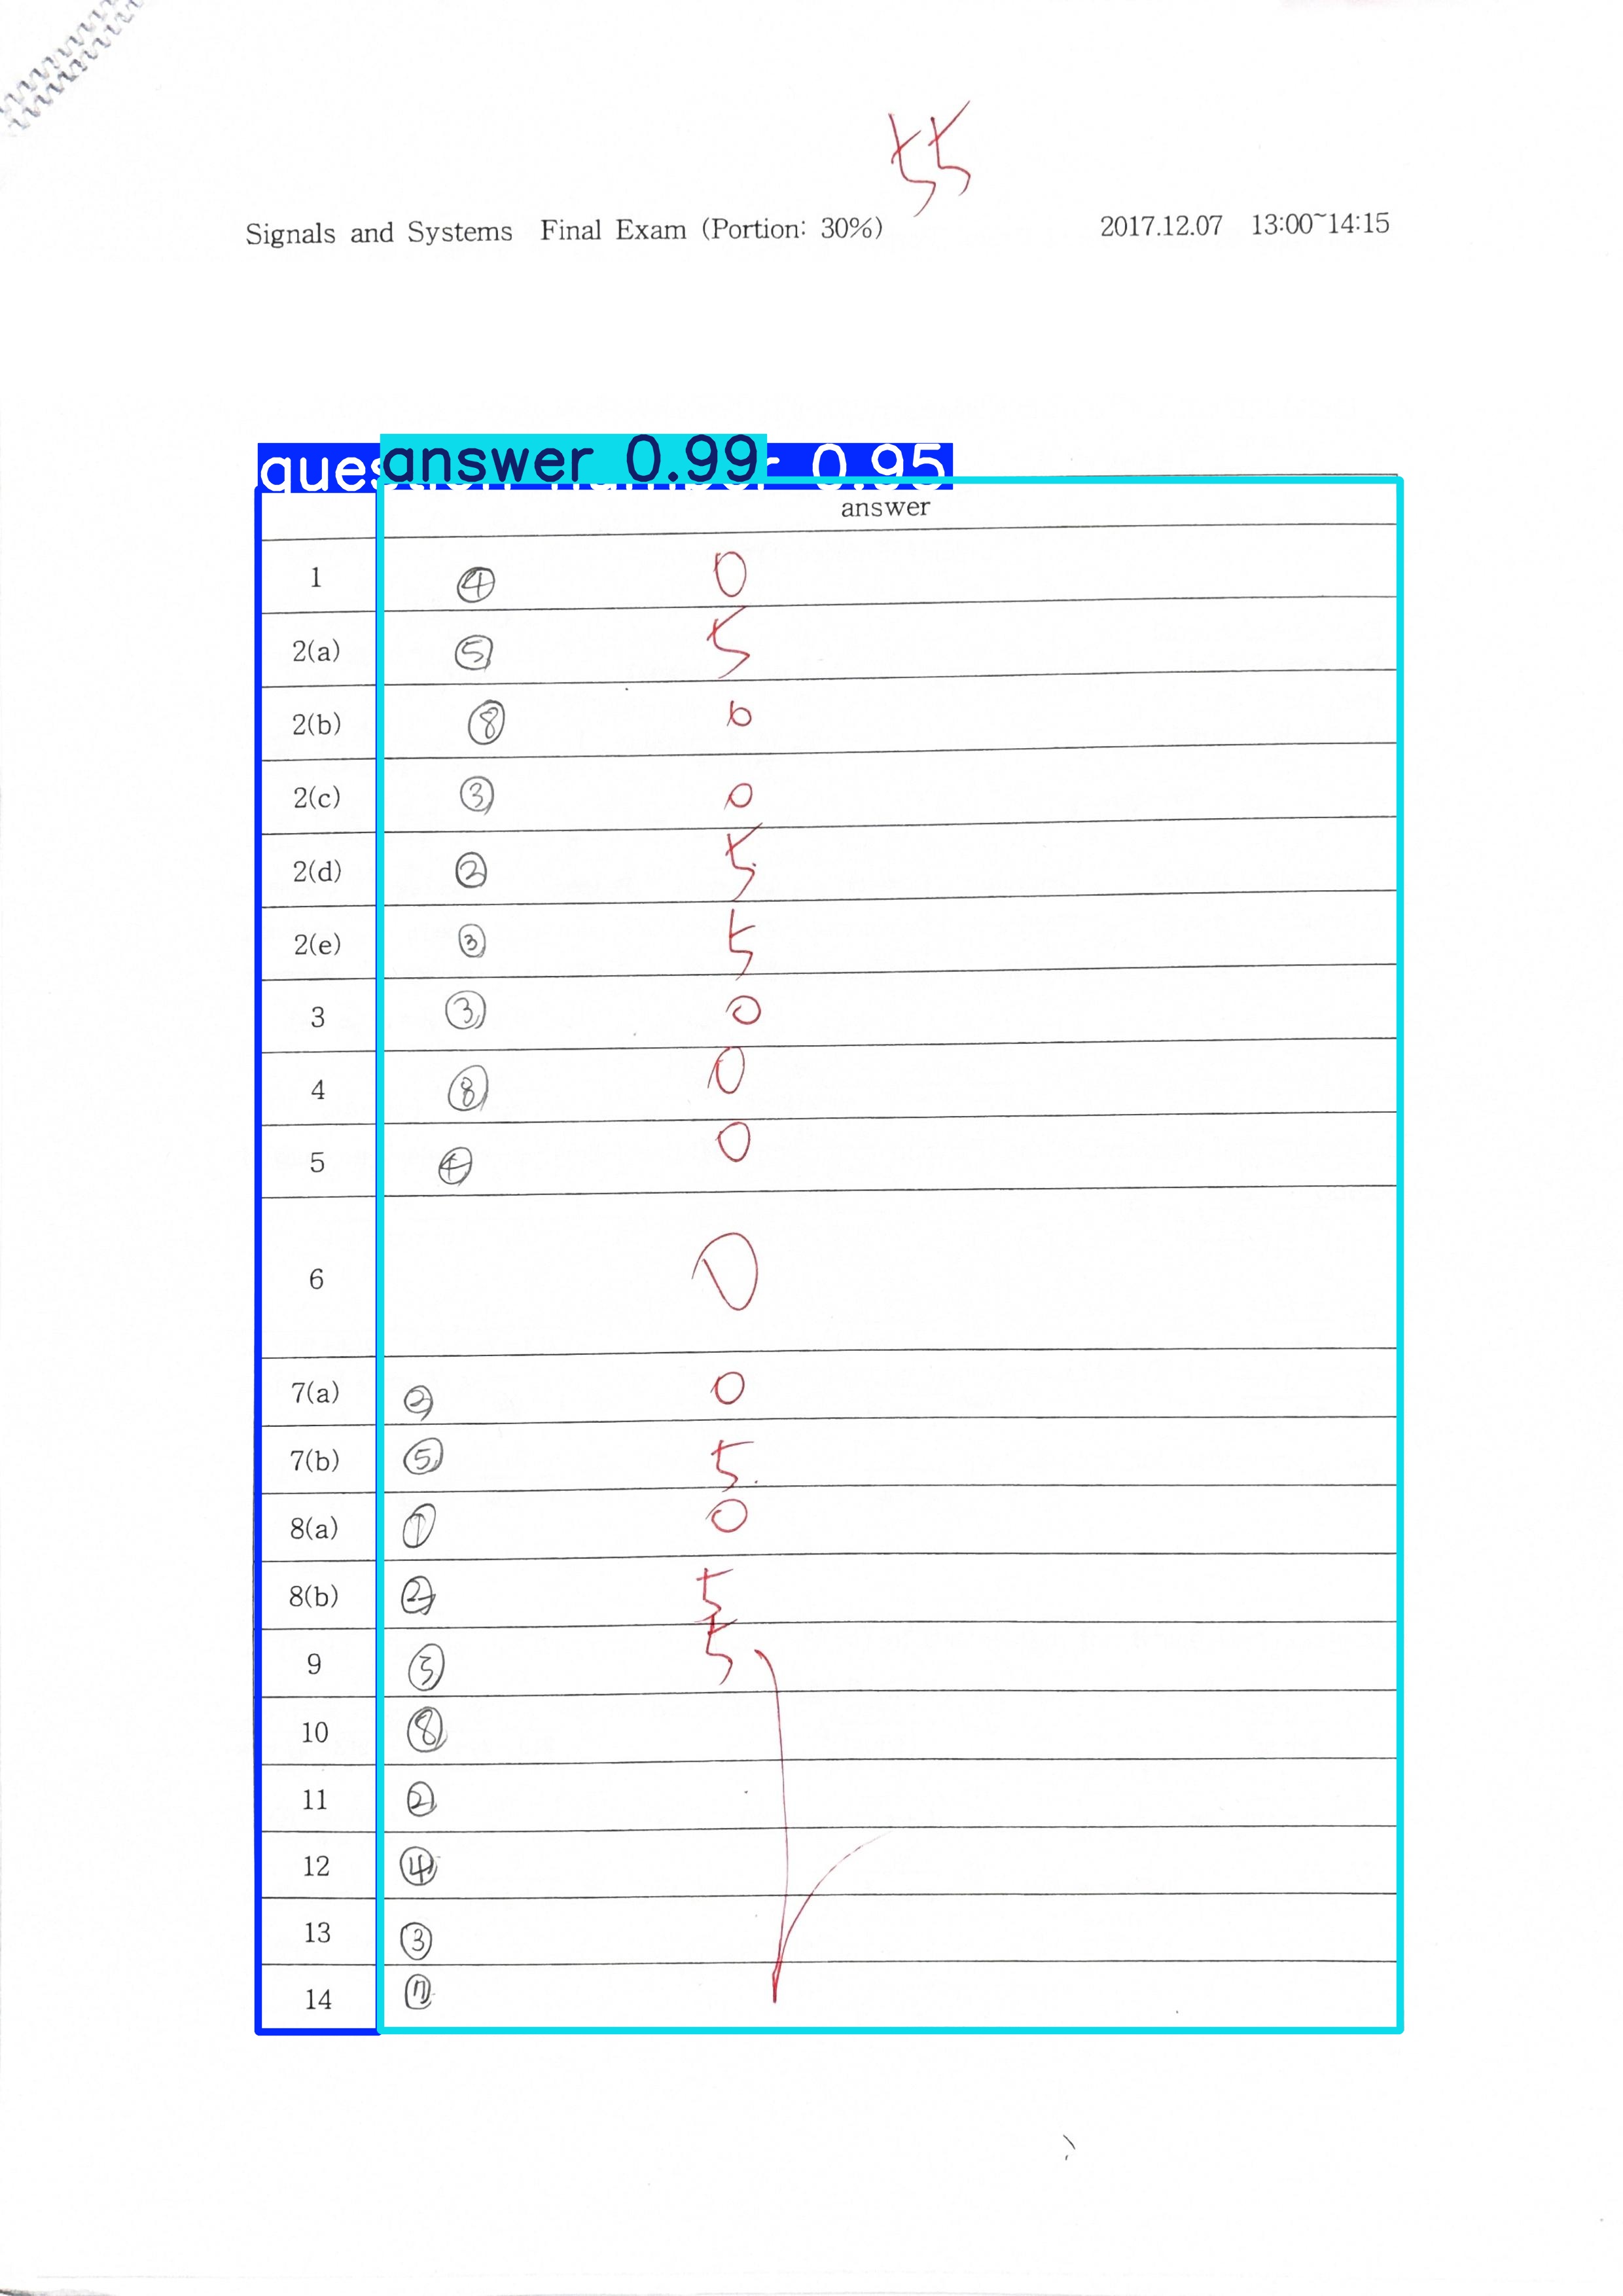 55
Signals and Systems Final Exam (Portion: 30%) 2017.12.07 13:00~14:15
answer 0.99 0.95
answer
1 ④ 0
2(a) ⑤ 5
2(b) ⑧ 0
2(c) ③ 0
2(d) ② 5
2(e) ③ 5
3 ③ 0
4 ⑧ 0
5 ④ 0
6 0
7(a) ② 0
7(b) ⑤ 5
8(a) ① 0
8(b) ② 5
9 5
10 ⑧
11 ②
12 ④
13 ③
14 ⑦